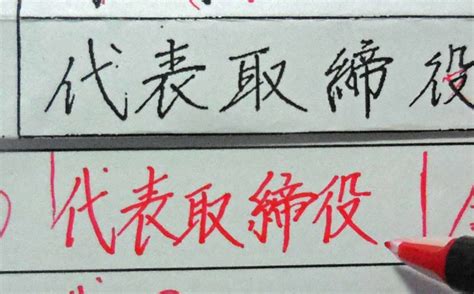 代表取締役
代表取締役